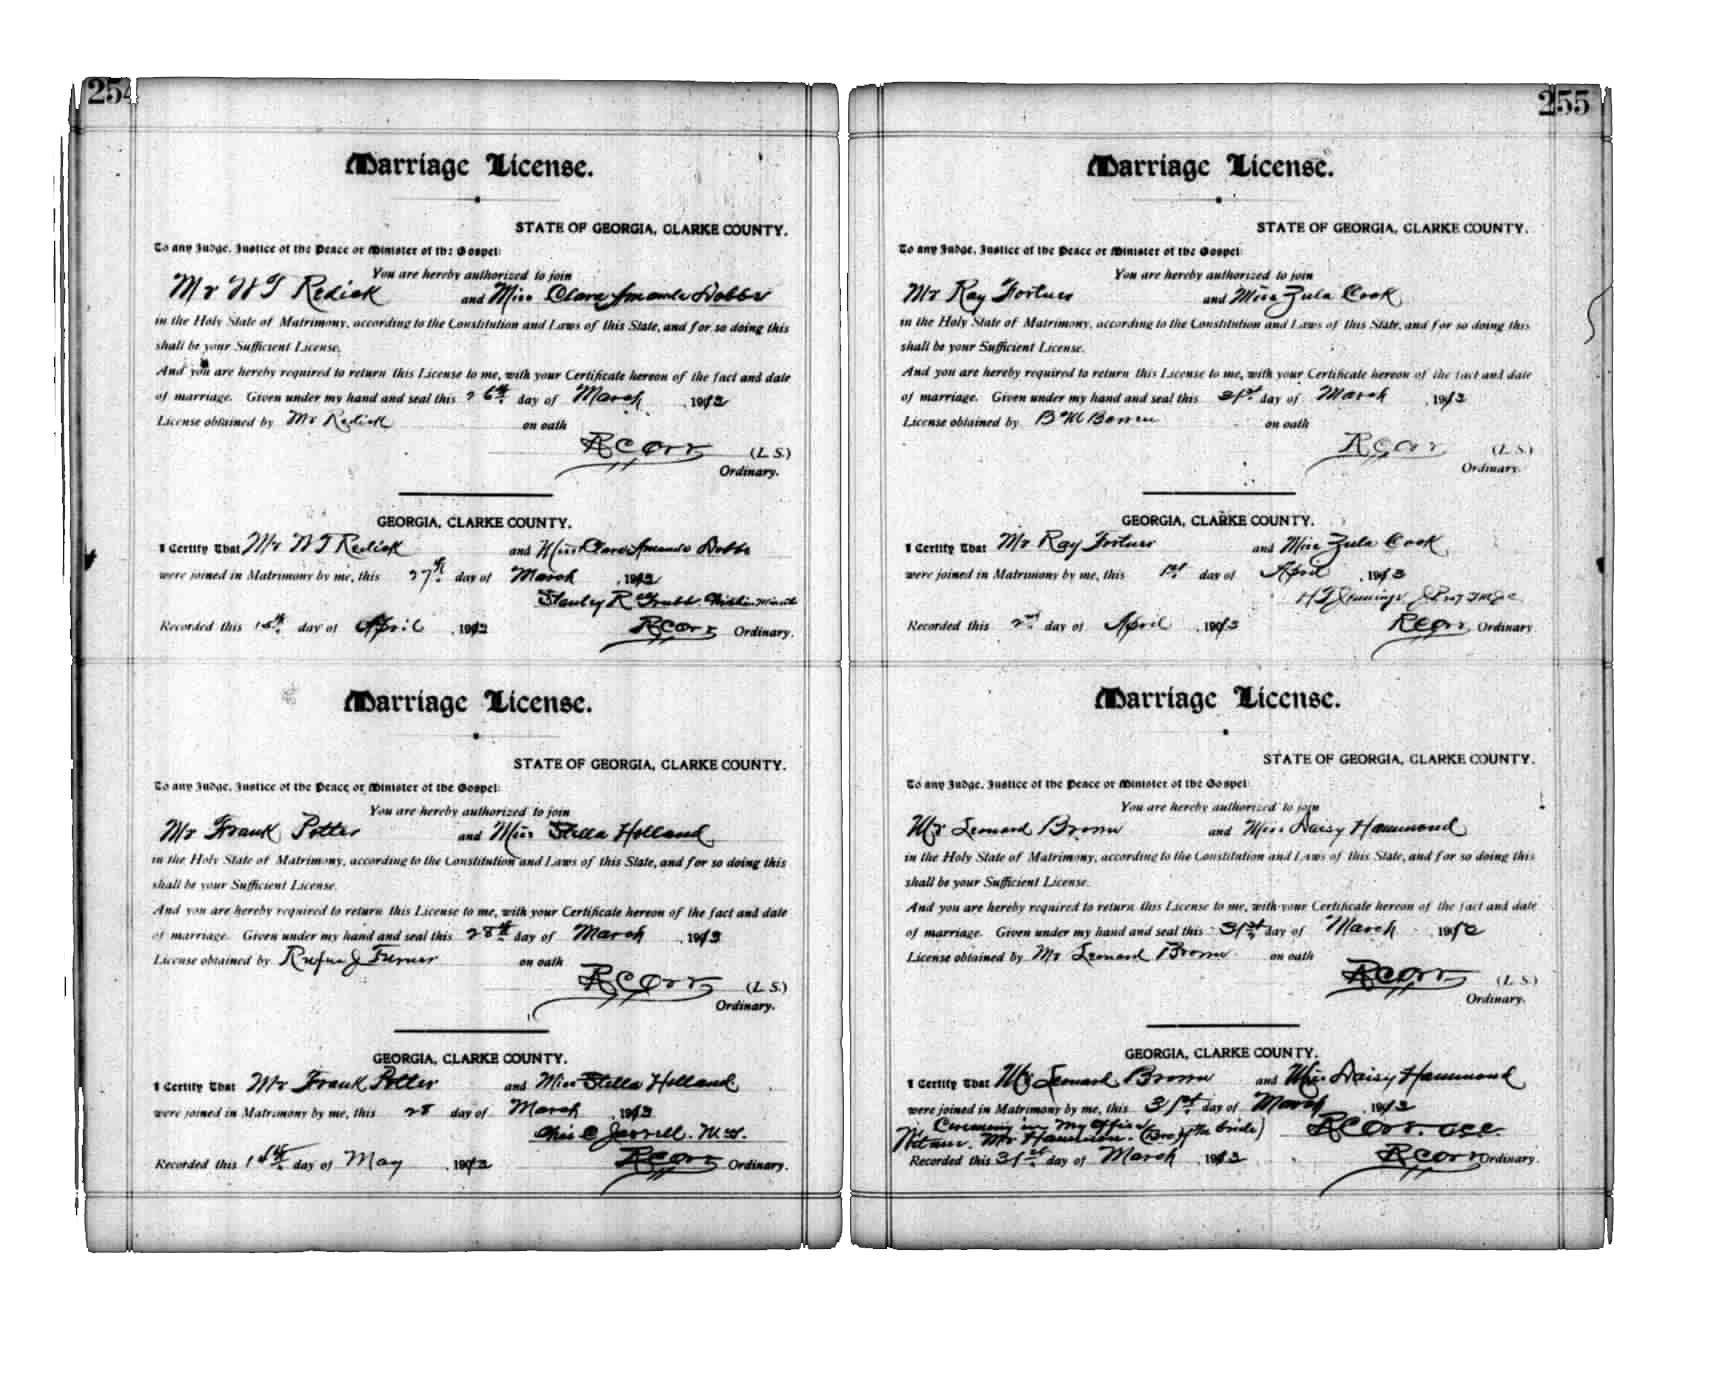 254
Marriage License.
STATE OF GEORGIA, CLARKE COUNTY.
To any Judge, Justice of the Peace or Minister of the Gospel:
You are hereby authorized to join
Mr W T Redick and Miss Clara Amanda Dobbs
in the Holy State of Matrimony, according to the Constitution and Laws of this State, and for so doing this
shall be your Sufficient License.
And you are hereby required to return this License to me, with your Certificate hereon of the fact and date
of marriage. Given under my hand and seal this 26th day of March, 1913
License obtained by Mr Redick on oath
R C Orr (L. S.)
Ordinary.
GEORGIA, CLARKE COUNTY.
I Certify That Mr W T Redick and Miss Clara Amanda Dobbs
were joined in Matrimony by me, this 27th day of March, 1913
Stanley R Grubb
Recorded this day of April, 1913 R C Orr Ordinary.
Marriage License.
STATE OF GEORGIA, CLARKE COUNTY.
To any Judge, Justice of the Peace or Minister of the Gospel:
You are hereby authorized to join
Mr Frank Potter and Miss Stella Holland
in the Holy State of Matrimony, according to the Constitution and Laws of this State, and for so doing this
shall be your Sufficient License.
And you are hereby required to return this License to me, with your Certificate hereon of the fact and date
of marriage. Given under my hand and seal this 28th day of March, 1913
License obtained by Rufus J Turner on oath
R C Orr (L. S.)
Ordinary.
GEORGIA, CLARKE COUNTY.
I Certify That Mr Frank Potter and Miss Stella Holland
were joined in Matrimony by me, this 28 day of March, 1913
Chas C Jarrell. M.G.
Recorded this day of May, 1913 R C Orr Ordinary.
255
Marriage License.
STATE OF GEORGIA, CLARKE COUNTY.
To any Judge, Justice of the Peace or Minister of the Gospel:
You are hereby authorized to join
Mr Ray Fortner and Miss Zula Cook
in the Holy State of Matrimony, according to the Constitution and Laws of this State, and for so doing this
shall be your Sufficient License.
And you are hereby required to return this License to me, with your Certificate hereon of the fact and date
of marriage. Given under my hand and seal this 31st day of March, 1913
License obtained by B M on oath
R C Orr (L. S.)
Ordinary.
GEORGIA, CLARKE COUNTY.
I Certify That Mr Ray Fortner and Miss Zula Cook
were joined in Matrimony by me, this 1st day of April, 1913
H T Jennings
Recorded this 2nd day of April, 1913 R C Orr Ordinary
Marriage License.
STATE OF GEORGIA, CLARKE COUNTY.
To any Judge, Justice of the Peace or Minister of the Gospel:
You are hereby authorized to join
Mr Leonard Brown and Miss Daisy Hammond
in the Holy State of Matrimony, according to the Constitution and Laws of this State, and for so doing this
shall be your Sufficient License.
And you are hereby required to return this License to me, with your Certificate hereon of the fact and date
of marriage. Given under my hand and seal this 31st day of March, 1913
License obtained by Mr Leonard Brown on oath
R C Orr (L. S.)
Ordinary.
GEORGIA, CLARKE COUNTY.
I Certify That Mr Leonard Brown and Miss Daisy Hammond
were joined in Matrimony by me, this 31st day of March, 1913
Ceremony in my office
Witness. Mr Hammond. (Bro of the bride) R C Orr.
Recorded this 31st day of March, 1913 R C Orr Ordinary.